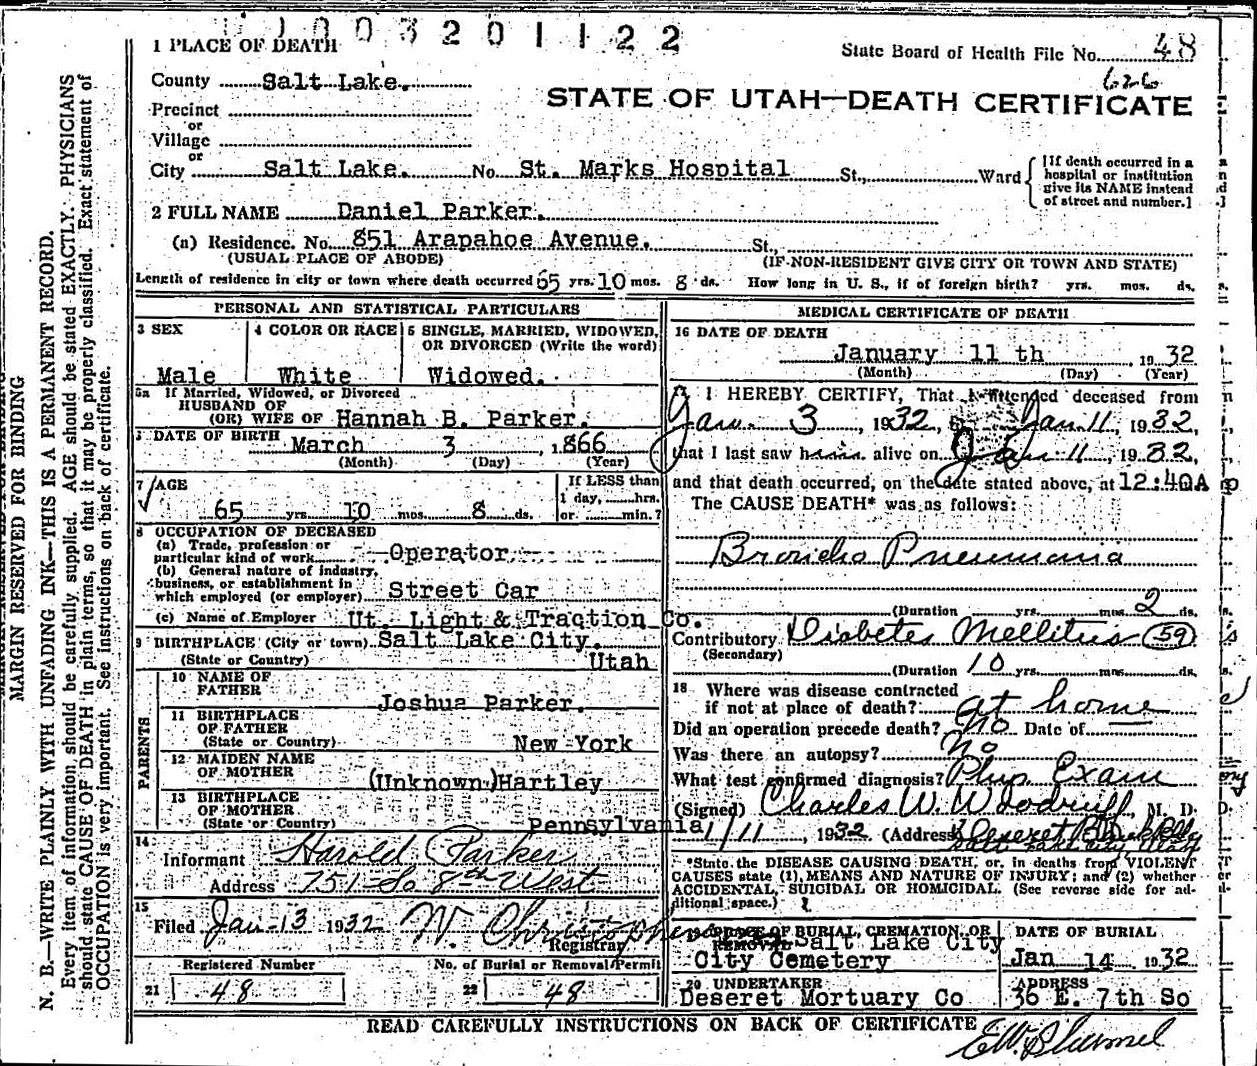 003201122
1 PLACE OF DEATH
State Board of Health File No. 48
626
County Salt Lake.
STATE OF UTAH—DEATH CERTIFICATE
Precinct
or
Village
or
City Salt Lake. No. St. Marks Hospital St., Ward
[If death occurred in a
hospital or institution
give its NAME instead
of street and number.]
2 FULL NAME Daniel Parker.
(a) Residence. No. 851 Arapahoe Avenue. St.,
(USUAL PLACE OF ABODE) (IF NON-RESIDENT GIVE CITY OR TOWN AND STATE)
Length of residence in city or town where death occurred 65 yrs. 10 mos. 8 ds. How long in U. S., if of foreign birth? yrs. mos. ds.
PERSONAL AND STATISTICAL PARTICULARS
3 SEX
Male
4 COLOR OR RACE
White
5 SINGLE, MARRIED, WIDOWED,
OR DIVORCED (Write the word)
Widowed.
5a If Married, Widowed, or Divorced
HUSBAND OF
(OR) WIFE OF Hannah B. Parker.
DATE OF BIRTH March 3, 1866
(Month) (Day) (Year)
7 AGE
65 yrs. 10 mos. 8 ds.
If LESS than
1 day, hrs.
or min.?
8 OCCUPATION OF DECEASED
(a) Trade, profession or
particular kind of work Operator
(b) General nature of industry,
business, or establishment in
which employed (or employer) Street Car
(c) Name of Employer Ut. Light & Traction Co.
9 BIRTHPLACE (City or town) Salt Lake City.
(State or Country) Utah
PARENTS
10 NAME OF
FATHER Joshua Parker.
11 BIRTHPLACE
OF FATHER
(State or Country) New York
12 MAIDEN NAME
OF MOTHER (Unknown) Hartley
13 BIRTHPLACE
OF MOTHER
(State or Country) Pennsylvania
14
Informant Harold Parker
Address 751 So 8th West
15
Filed Jan-13 1932 W. Christophers
Registrar
Registered Number No. of Burial or Removal Permit
21 48 22 48
MEDICAL CERTIFICATE OF DEATH
16 DATE OF DEATH
January 11 th, 1932
(Month) (Day) (Year)
17 I HEREBY CERTIFY, That I attended deceased from
Jan. 3, 1932, Jan 11, 1932,
that I last saw him alive on Jan 11, 1932,
and that death occurred, on the date stated above, at 12:40A
The CAUSE DEATH* was as follows:
Broncho Pneumonia
(Duration yrs. mos. 2 ds.
Contributory Diabetes Mellitus 59
(Secondary)
(Duration 10 yrs. mos. ds.
18 Where was disease contracted
if not at place of death? at home
Did an operation precede death? no Date of —
Was there an autopsy? no
What test confirmed diagnosis? Phys Exam
(Signed) Charles W. Woodruff, M. D.
1/11, 1932 (Address Deseret
*State the DISEASE CAUSING DEATH, or, in deaths from VIOLENT
CAUSES state (1), MEANS AND NATURE OF INJURY; and (2) whether
ACCIDENTAL, SUICIDAL OR HOMICIDAL. (See reverse side for additional space.)
19 PLACE OF BURIAL, CREMATION, OR
REMOVAL Salt Lake City
City Cemetery
DATE OF BURIAL
Jan 14 1932
20 UNDERTAKER
Deseret Mortuary Co
ADDRESS
36 E. 7th So
READ CAREFULLY INSTRUCTIONS ON BACK OF CERTIFICATE
MARGIN RESERVED FOR BINDING
N. B.—WRITE PLAINLY WITH UNFADING INK—THIS IS A PERMANENT RECORD.
Every item of information should be carefully supplied. AGE should be stated EXACTLY. PHYSICIANS
should state CAUSE OF DEATH in plain terms, so that it may be properly classified. Exact statement of
OCCUPATION is very important. See instructions on back of certificate.